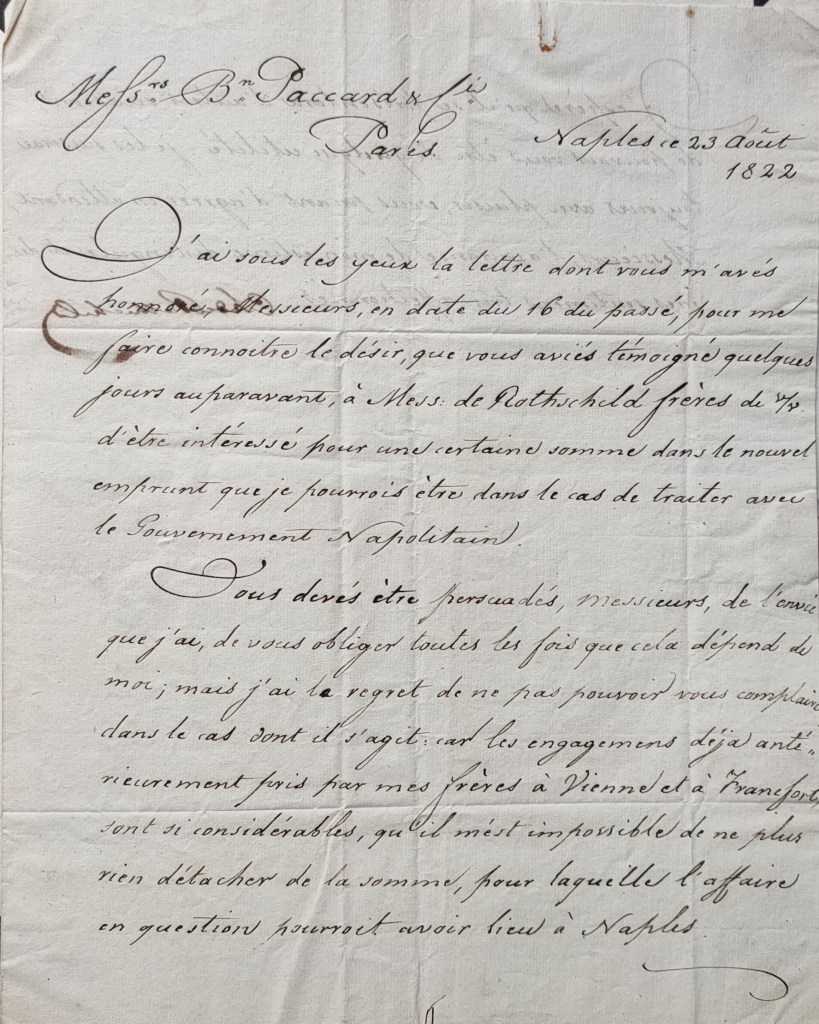 Messrs. Bn. Paccard & Cie
Paris.
Naples ce 23 Août
1822
J'ai sous les yeux la lettre dont vous m'avés
honnoré, Messieurs, en date du 16 du passé, pour me
faire connoitre le désir, que vous aviés témoigné quelques
jours auparavant, à Mess: de Rothschild frères de v/v.
d'être intéressé pour une certaine somme dans le nouvel
emprunt que je pourrois être dans le cas de traiter avec
le Gouvernement Napolitain.
Vous devés être persuadés, Messieurs, de l'envie
que j'ai, de vous obliger toutes les fois que cela dépend de
moi; mais j'ai le regret de ne pas pouvoir vous complaire
dans le cas dont il s'agit: car les engagemens déja anté-
rieurement pris par mes frères à Vienne et à Francfort,
sont si considérables, qu'il m'est impossible de ne plus
rien détacher de la somme, pour laquelle l'affaire
en question pourroit avoir lieu à Naples.